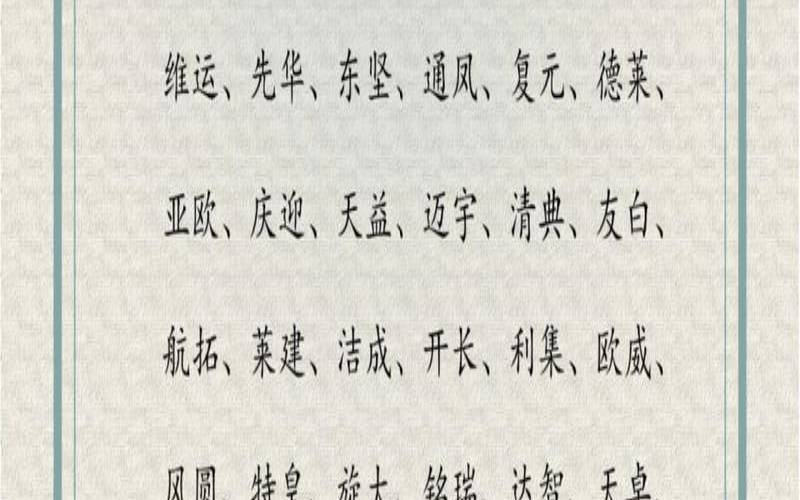 维运、先华、东坚、通凤、复元、德莱、
亚欧、庆迎、天益、迈宇、清典、友白、
航拓、莱建、洁成、开长、利集、欧威、
风圆、特皇、旋大、铭瑞、达智、天卓、